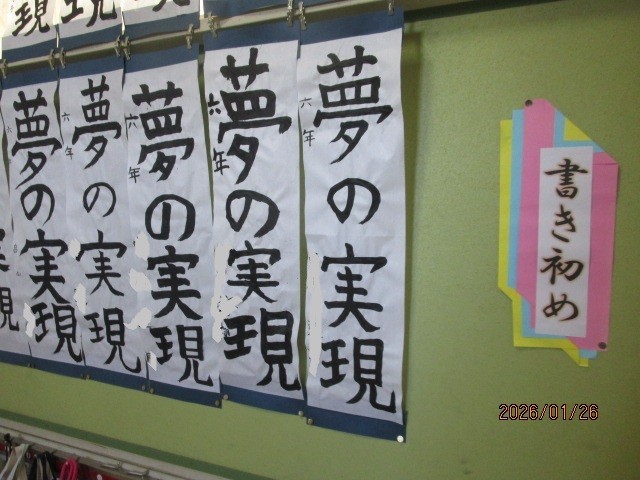 書き初め
六年
夢の実現
六年
夢の実現
六年
夢の実現
六年
夢の実現
夢の実現
実現
現
現
現
2026/01/26